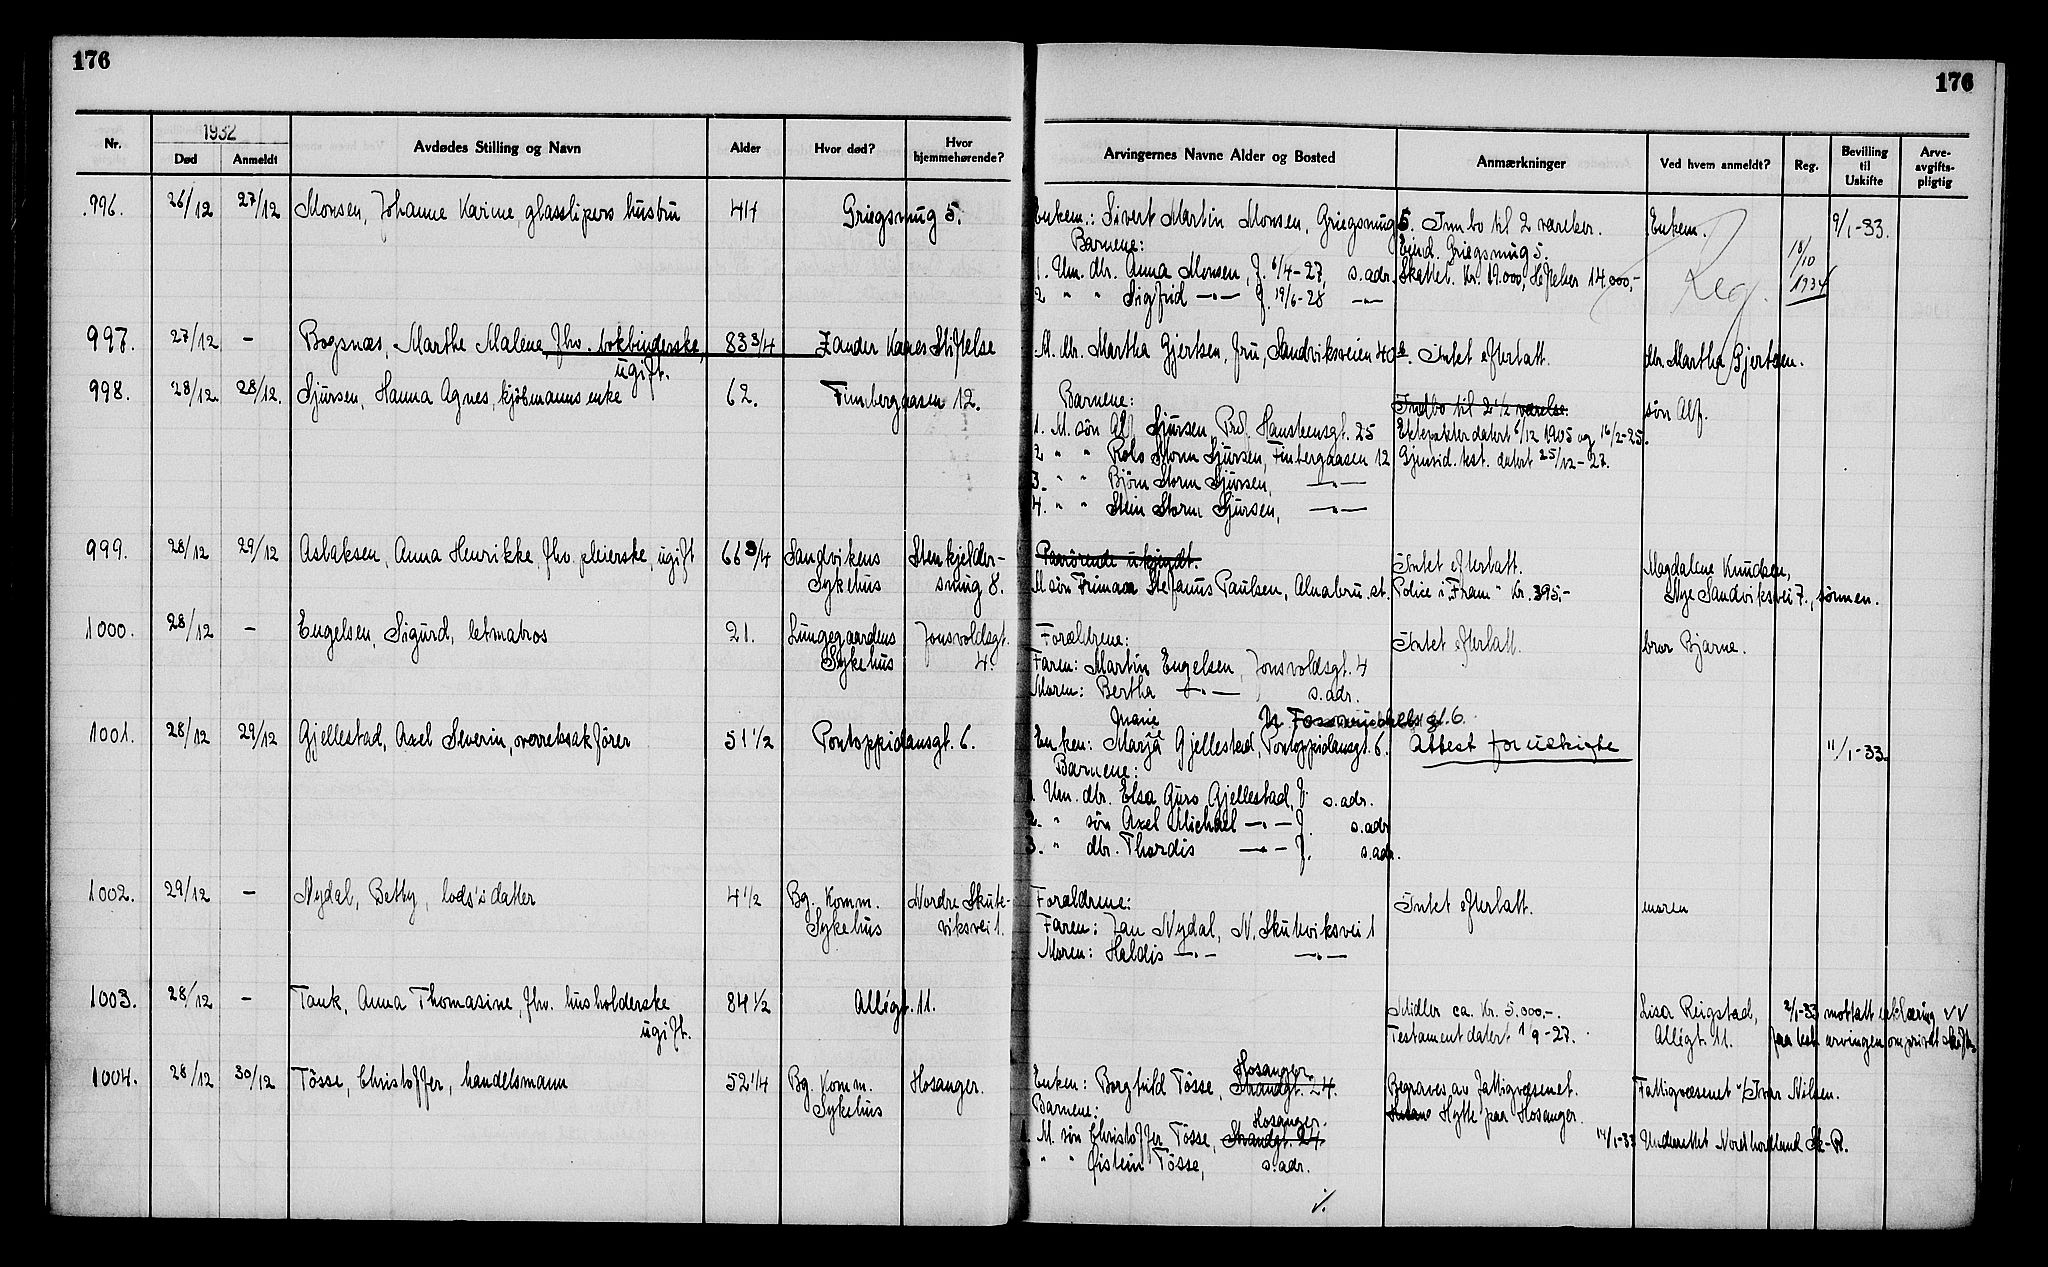 176
176
1932
Nr.
Død
Anmeldt
Avdødes Stilling og Navn
Alder
Hvor død?
Hvor hjemmehørende?
Arvingernes Navne Alder og Bosted
Anmærkninger
Ved hvem anmeldt?
Reg.
Bevilling til Uskifte
Arve-avgifts-pligtig
996. 26/12 27/12 Monsen, Johanne Karine, glasslipers hustru 44 Griegsmug 5.
Enkem.: Sivert Martin Monsen, Griegsmug 5. Innbo til 2 værelser. Enkem. 9/1-33.
Barnene: Eiend. Griegsmug 5. 18/10
1. Um. dtr. Anna Monsen, f. 6/4-27, s. adr. Skattet. Kr. 19.000, Heftelser 14.000,- Reg. 1934
2 " " Sigfrid —"— f. 19/6-28 —"—
997. 27/12 - Bognsnæs, Marthe Malene fhv. bokbinderske, 83 3/4 Zander Kaaes Stiftelse
ugift.
M. dtr. Martha Gjertsen, fru, Sandviksveien 40a. Intet efterlatt. dtr. Martha Gjertsen.
998. 28/12 28/12. Sjursen, Hanna Agnes, kjøbmanns enke 62. Finbergaasen 12.
Barnene: Indbo til 2 1/2 værelse. søn Alf.
1. M. søn Alf Sjursen, Prof. Hansteensgt. 25 Ektepakter datert 6/12 1905 og 16/2-25.
2 " " Rolv Storm Sjursen, Finbergaasen 12 Gjensid. test. datert 25/12-27.
3. " " Bjørn Storm Sjursen, —"—
4. " " Stein Storm Sjursen, —"—
999. 28/12 29/12 Aslaksen, Anna Henrikke, fhv. pleierske, ugift 66 3/4 Sandvikens Stenkjelder-
Sykehus smug 8.
Paarørende ukjendt. Intet efterlatt. Magdalene Knudsen,
M søn Frimann Stefanus Paulsen, Alnabru st. Police i "Fram" kr. 395,- Nye Sandviksvei 7., sønnen.
1000. 28/12 - Engelsen, Sigurd, letmatros 21. Lungegaardens Jonsvoldsgt.
Sykehus 4.
Forældrene: Intet efterlatt. bror Bjarne.
Faren: Martin Engelsen, Jonsvoldsgt. 4
Moren: Bertha —"— , s. adr.
1001. 28/12 29/12 Gjellestad, Axel Severin, overretssakfører 51 1/2 Pontoppidansgt. 6.
Marie
gt. 6
Enken: Marja Gjellestad, Pontoppidansgt. 6. Attest for uskifte 11/1-33.
Barnene:
1. Um. dtr. Elsa Guro Gjellestad, f. s. adr.
2. " søn Axel Michael —"— f. s. adr
3. " dtr. Thordis —"— f. s. adr.
1002. 29/12 - Nydal, Betty, lods's datter 4 1/2 Bg. Komm. Nordre Skute-
Sykehus viksvei 1.
Forældrene: Intet efterlatt. moren
Faren: Jan Nydal, N. Skuteviksvei 1
Moren: Haldis —"— —"—
1003. 28/12 - Tank, Anna Thomasine, fhv. husholderske 84 1/2 Allégt. 11.
ugift.
Midler ca. kr. 5.000,-. Lisa Reigstad, 2/1-33 mottatt erklæring
Testament datert 1/9-27. Allégt. 11. fra test. arvingen om privat skifte
1004. 28/12 30/12 Tösse, Christoffer, handelsmann 52 1/4 Bg. Komm. Hosanger.
Sykehus
Hosanger.
Enken: Borghild Tösse, Strandgt. 24. Begraves av fattigvæsenet. Fattigvæsenet v/ Ivar Nilsen.
Barnene: Hytte paa Hosanger.
Hosanger.
1. M. søn Christoffer Tösse, Strandgt. 24 14/1-33 Underrettet Nordhordland Sk-R.
" " Øistein Tösse, s. adr.